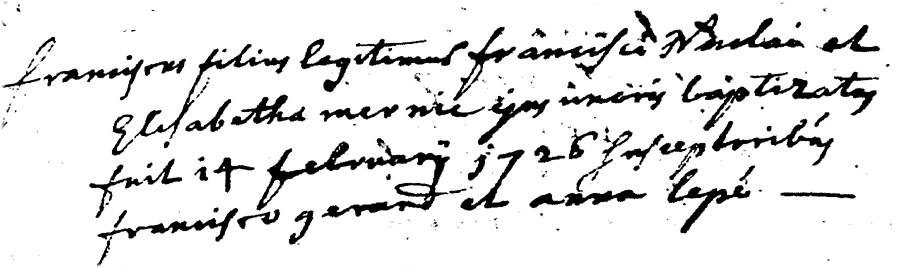 franciscus filius legitimus francisci et
Elisabetha mernie ejus uxoris baptizatus
fuit 14 februarij 1726 susceptoribus
francisco gerard et anna lepé